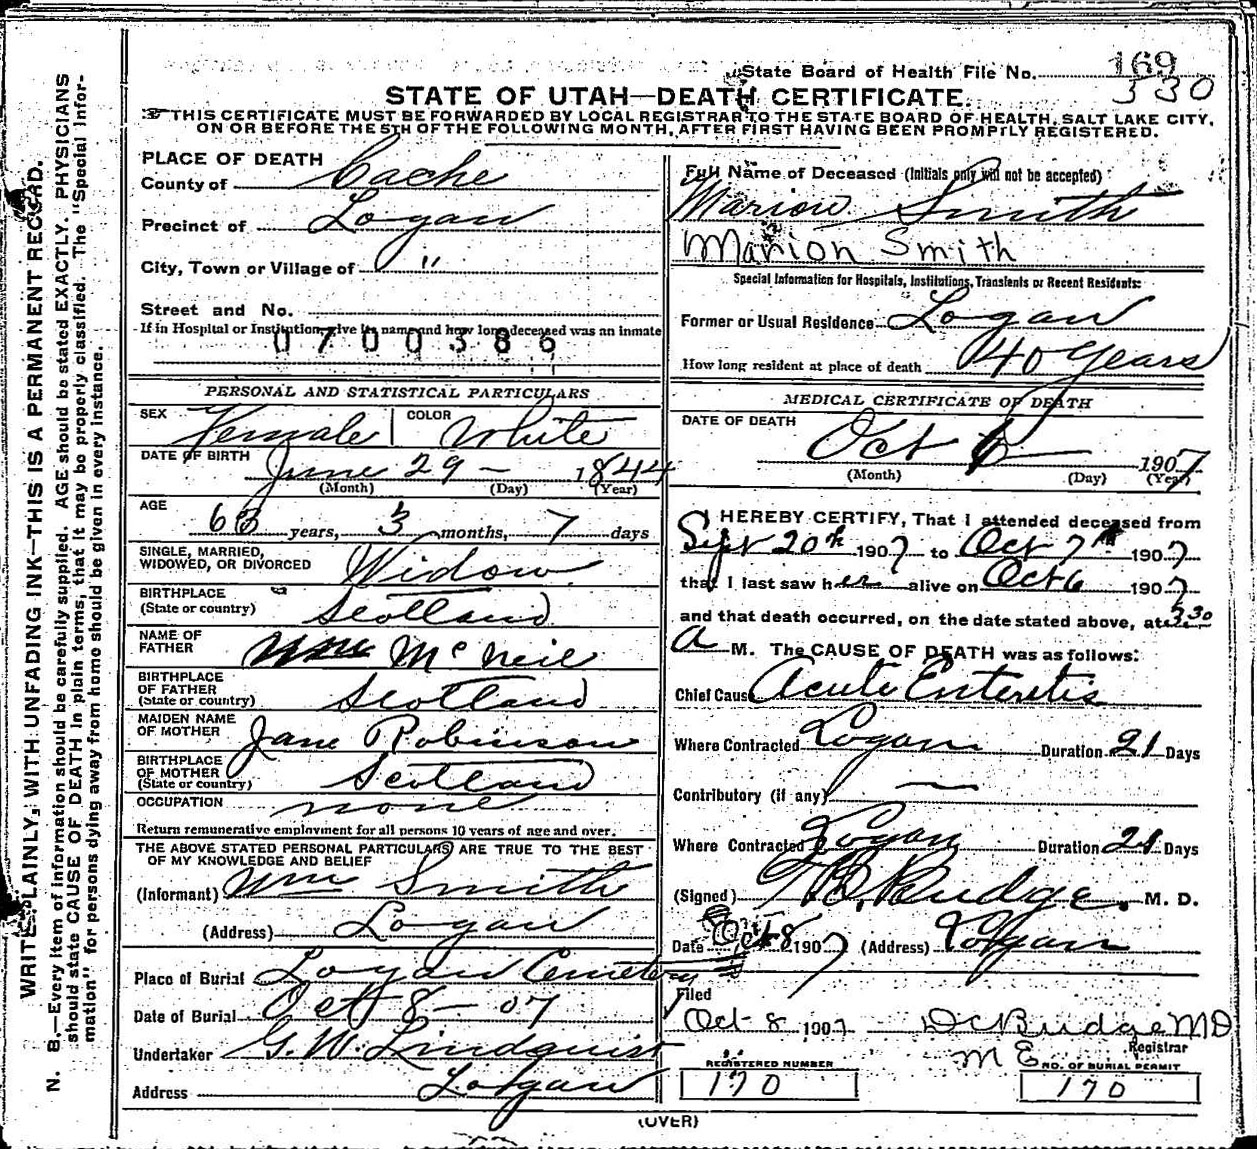 State Board of Health File No. 169
330
STATE OF UTAH—DEATH CERTIFICATE.
THIS CERTIFICATE MUST BE FORWARDED BY LOCAL REGISTRAR TO THE STATE BOARD OF HEALTH, SALT LAKE CITY,
ON OR BEFORE THE 5TH OF THE FOLLOWING MONTH, AFTER FIRST HAVING BEEN PROMPTLY REGISTERED.
PLACE OF DEATH
County of Cache
Precinct of Logan
City, Town or Village of "
Street and No.
If in Hospital or Institution, give its name and how long deceased was an inmate
0700386
PERSONAL AND STATISTICAL PARTICULARS
SEX Female COLOR White
DATE OF BIRTH June 29 - 1844
(Month) (Day) (Year)
AGE 63 years, 3 months, 7 days
SINGLE, MARRIED,
WIDOWED, OR DIVORCED Widow
BIRTHPLACE
(State or country) Scotland
NAME OF
FATHER Wm McNeil
BIRTHPLACE
OF FATHER
(State or country) Scotland
MAIDEN NAME
OF MOTHER Jane Robinson
BIRTHPLACE
OF MOTHER
(State or country) Scotland
OCCUPATION none
Return remunerative employment for all persons 10 years of age and over.
THE ABOVE STATED PERSONAL PARTICULARS ARE TRUE TO THE BEST
OF MY KNOWLEDGE AND BELIEF
(Informant) Wm Smith
(Address) Logan
Place of Burial Logan Cemetery
Date of Burial Oct 8 - 07
Undertaker G. W. Lindquist
Address Logan
Full Name of Deceased (Initials only will not be accepted)
Marion Smith
Marion Smith
Special Information for Hospitals, Institutions, Transients or Recent Residents:
Former or Usual Residence Logan
How long resident at place of death 40 Years
MEDICAL CERTIFICATE OF DEATH
DATE OF DEATH
Oct 6 1907
(Month) (Day) (Year)
I HEREBY CERTIFY, That I attended deceased from
Sept 20th 1907 to Oct 7th 1907
that I last saw her alive on Oct 6 1907
and that death occurred, on the date stated above, at 3.30
A M. The CAUSE OF DEATH was as follows:
Chief Cause Acute Enteretis
Where Contracted Logan Duration 21 Days
Contributory (if any) —
Where Contracted Logan Duration 21 Days
(Signed) Budge. M. D.
Date Oct 8 1907 (Address) Logan
Filed
Oct 8 1907 D C Budge MD
Registrar
REGISTERED NUMBER
170
M E NO. OF BURIAL PERMIT
170
(OVER)
WRITE PLAINLY, WITH UNFADING INK—THIS IS A PERMANENT RECORD.
N. B.—Every item of information should be carefully supplied. AGE should be stated EXACTLY. PHYSICIANS
should state CAUSE OF DEATH in plain terms, that it may be properly classified. The "Special Infor-
mation" for persons dying away from home should be given in every instance.